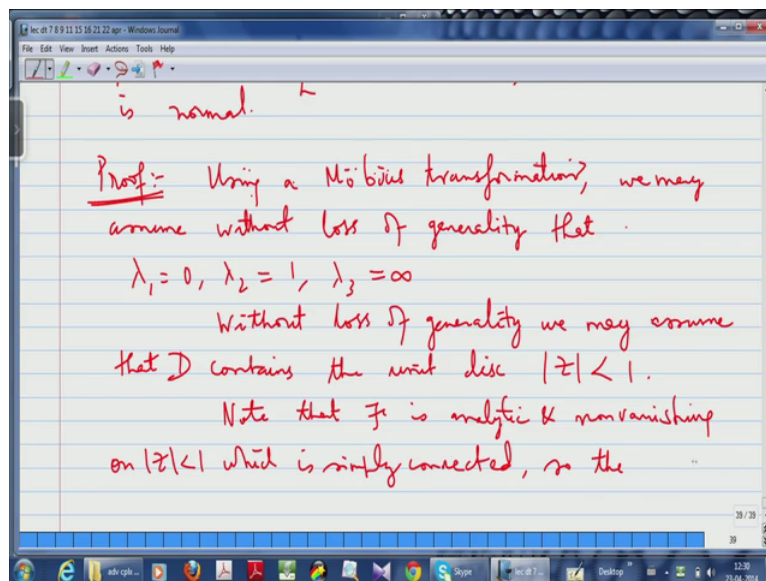 lec dt 7 8 9 11 15 16 21 22 apr - Windows Journal
File Edit View Insert Actions Tools Help
is normal.
Proof:- Using a Möbius transformation, we may
assume without loss of generality that
λ₁ = 0, λ₂ = 1, λ₃ = ∞
Without loss of generality we may assume
that D contains the unit disc |z| < 1.
Note that F is analytic & nonvanishing
on |z|<1 which is simply connected, so the
39 / 39
39
adv cplx ...
Skype
lec dt 7 ...
Desktop
12:30
23-04-2014